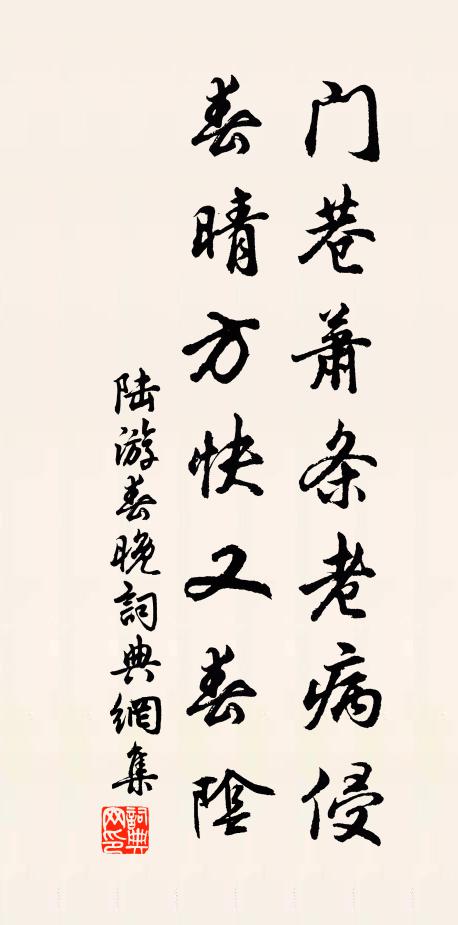 门巷萧条老病侵
春晴方快又春阴
陆游春晚詞典網集
詞典网印